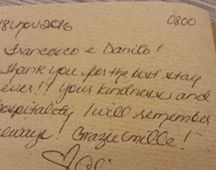 18 nov 2016 0800
Francesco e Danilo!
Thank you for the best stay
ever!! your kindness and
hospitality I will remember
always! Grazie mille!